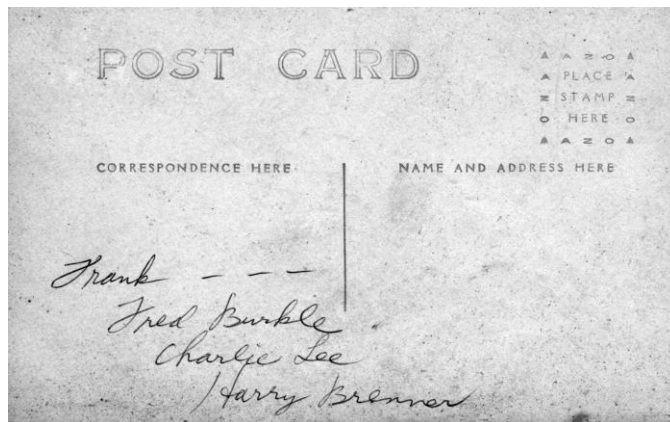 POST CARD
AZO
PLACE
STAMP
HERE
AZO
CORRESPONDENCE HERE
NAME AND ADDRESS HERE
Frank - - -
Fred Burkle
Charlie Lee
Harry Brenner